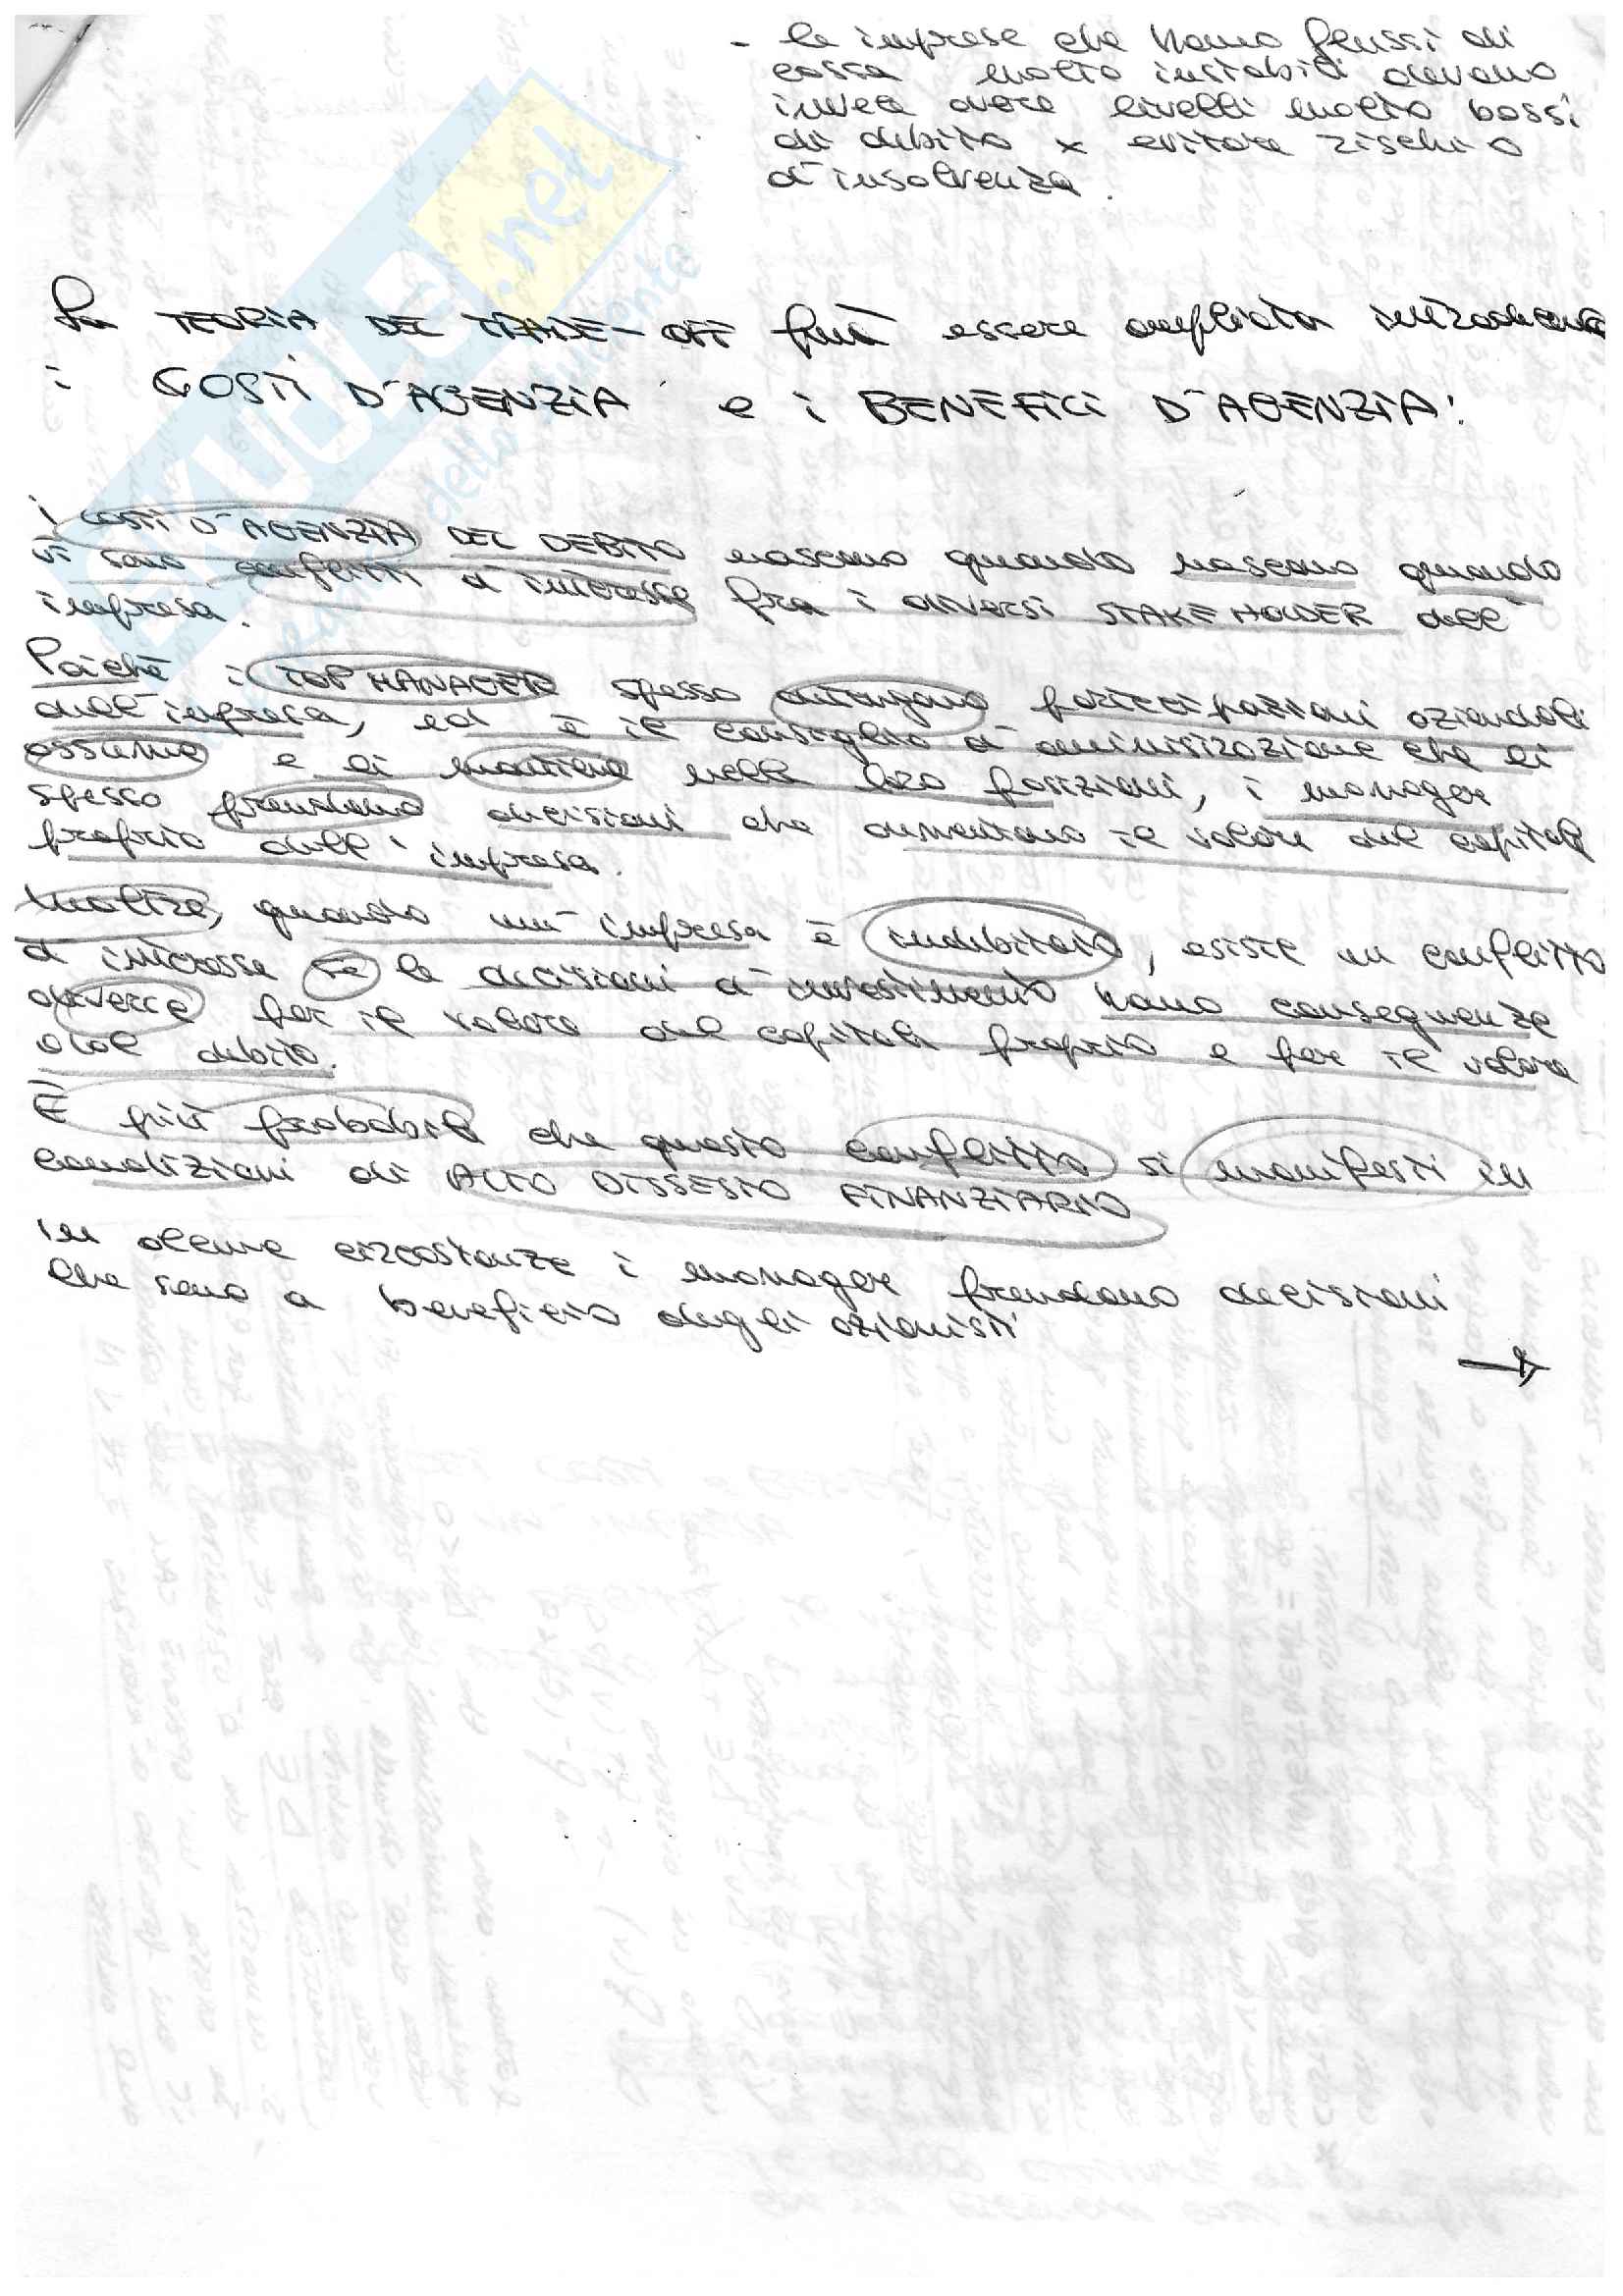 - le imprese che hanno flussi di
cassa molto instabili devono
invece avere livelli molto bassi
di debito x evitare rischio
d'insolvenza.
La TEORIA DEL TRADE-OFF può essere ampliata introducendo
i COSTI D'AGENZIA e i BENEFICI D'AGENZIA:
i COSTI D'AGENZIA DEL DEBITO nascono quando nascono quando
vi sono conflitti d'interesse fra i diversi STAKEHOLDER dell'
impresa.
Poichè i TOP MANAGER spesso detengono partecipazioni aziendali
dell'impresa, ed è il consiglio d'amministrazione che li
assume e li mantiene nelle loro posizioni, i manager
spesso prendono decisioni che aumentano il valore del capitale
proprio dell'impresa.
Inoltre, quando un'impresa è indebitata, esiste un conflitto
d'interesse se le decisioni d'investimento hanno conseguenze
diverse per il valore del capitale proprio e per il valore
del debito.
È più probabile che questo conflitto si manifesti in
condizioni di ALTO DISSESTO FINANZIARIO
in alcune circostanze i manager prendono decisioni
che sono a beneficio degli azionisti
→
SKUOLA.net
dello studente